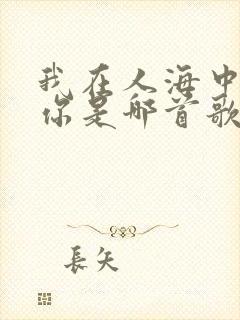 我在人海中
你是哪首歌
長矢